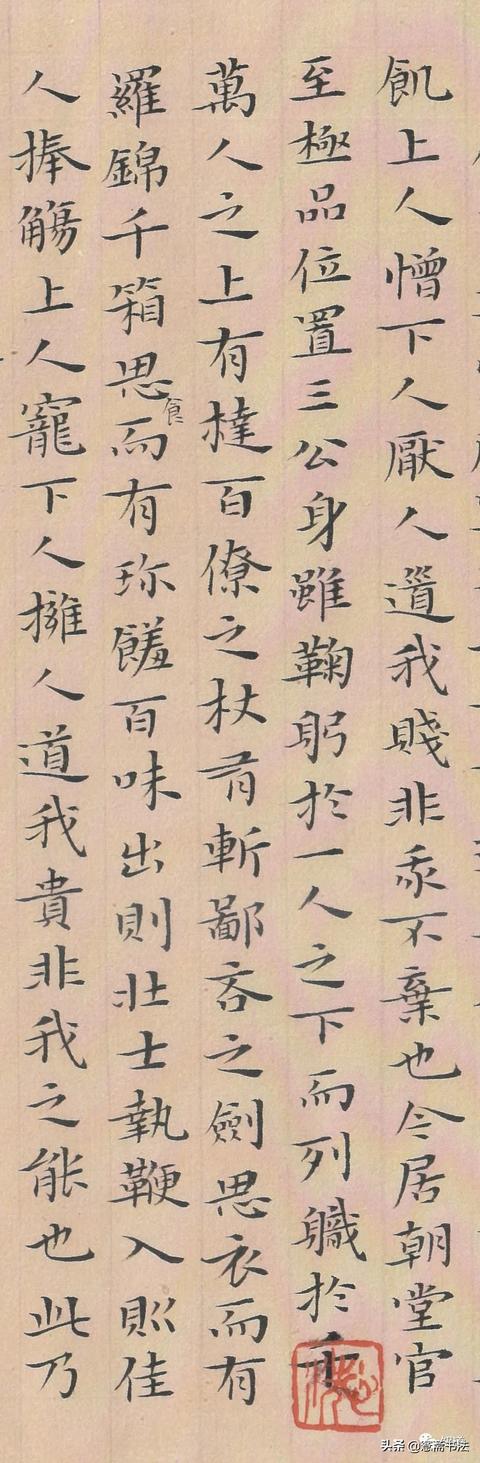 飢上人憎下人厭人道我賤非不棄也今居朝堂官
至極品位置三公身雖鞠躬於一人之下而列職於
萬人之上有撻百僚之杖有斬鄙吝之劍思衣而有
羅錦千箱思食而有珍饈百味出則壯士執鞭入則佳
人捧觴上人寵下人擁人道我貴非我之能也此乃
头条 @斋书法